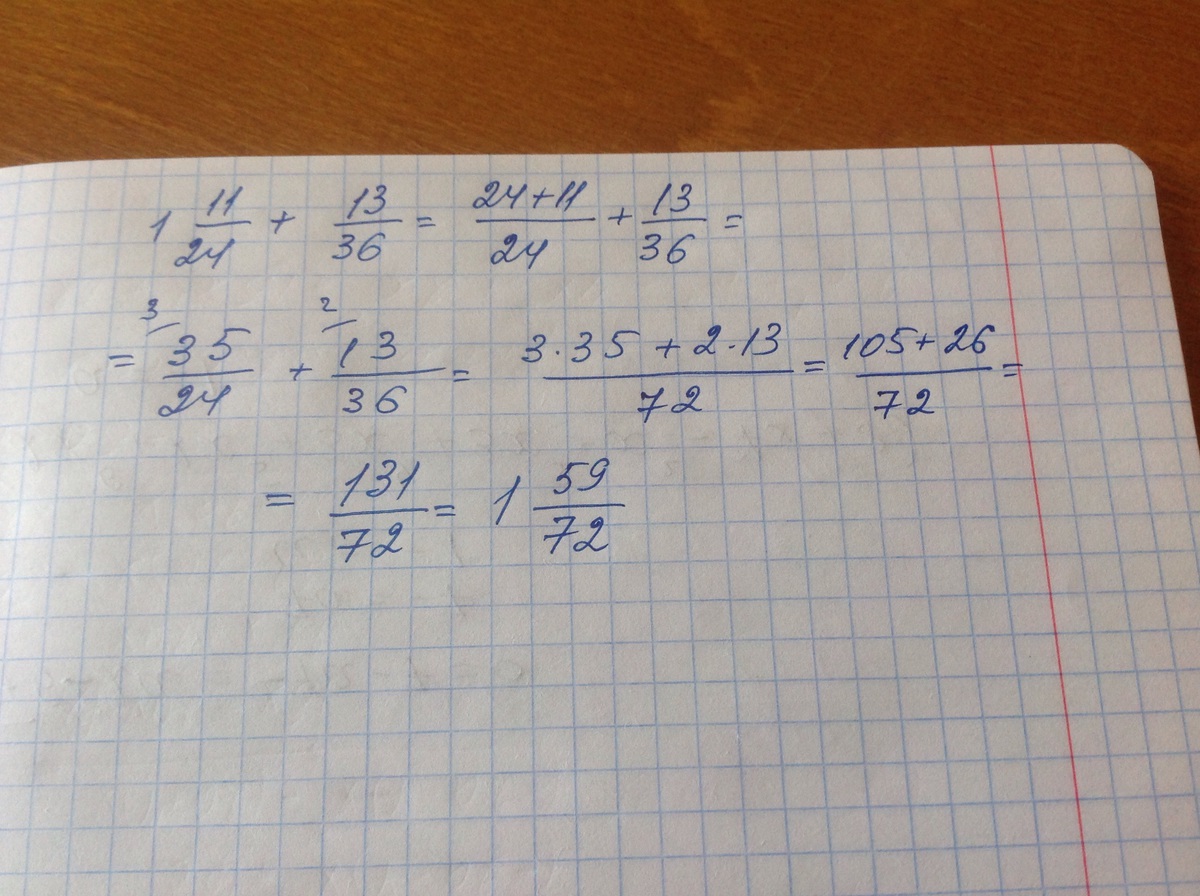 1 11/24 + 13/36 = 24+11/24 + 13/36 =
= 3 35/24 + 2 13/36 = 3·35 + 2·13/72 = 105+26/72 =
= 131/72 = 1 59/72